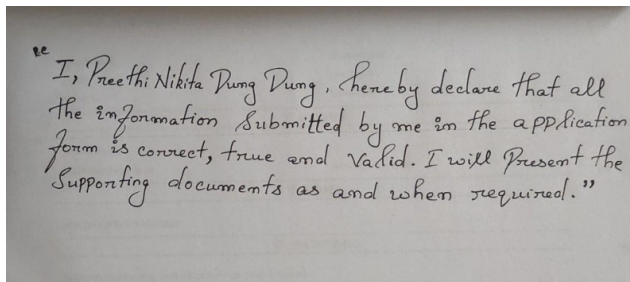 "I, Preethi Nikita Dung Dung, hereby declare that all
the information submitted by me in the application
form is correct, true and valid. I will present the
supporting documents as and when required."